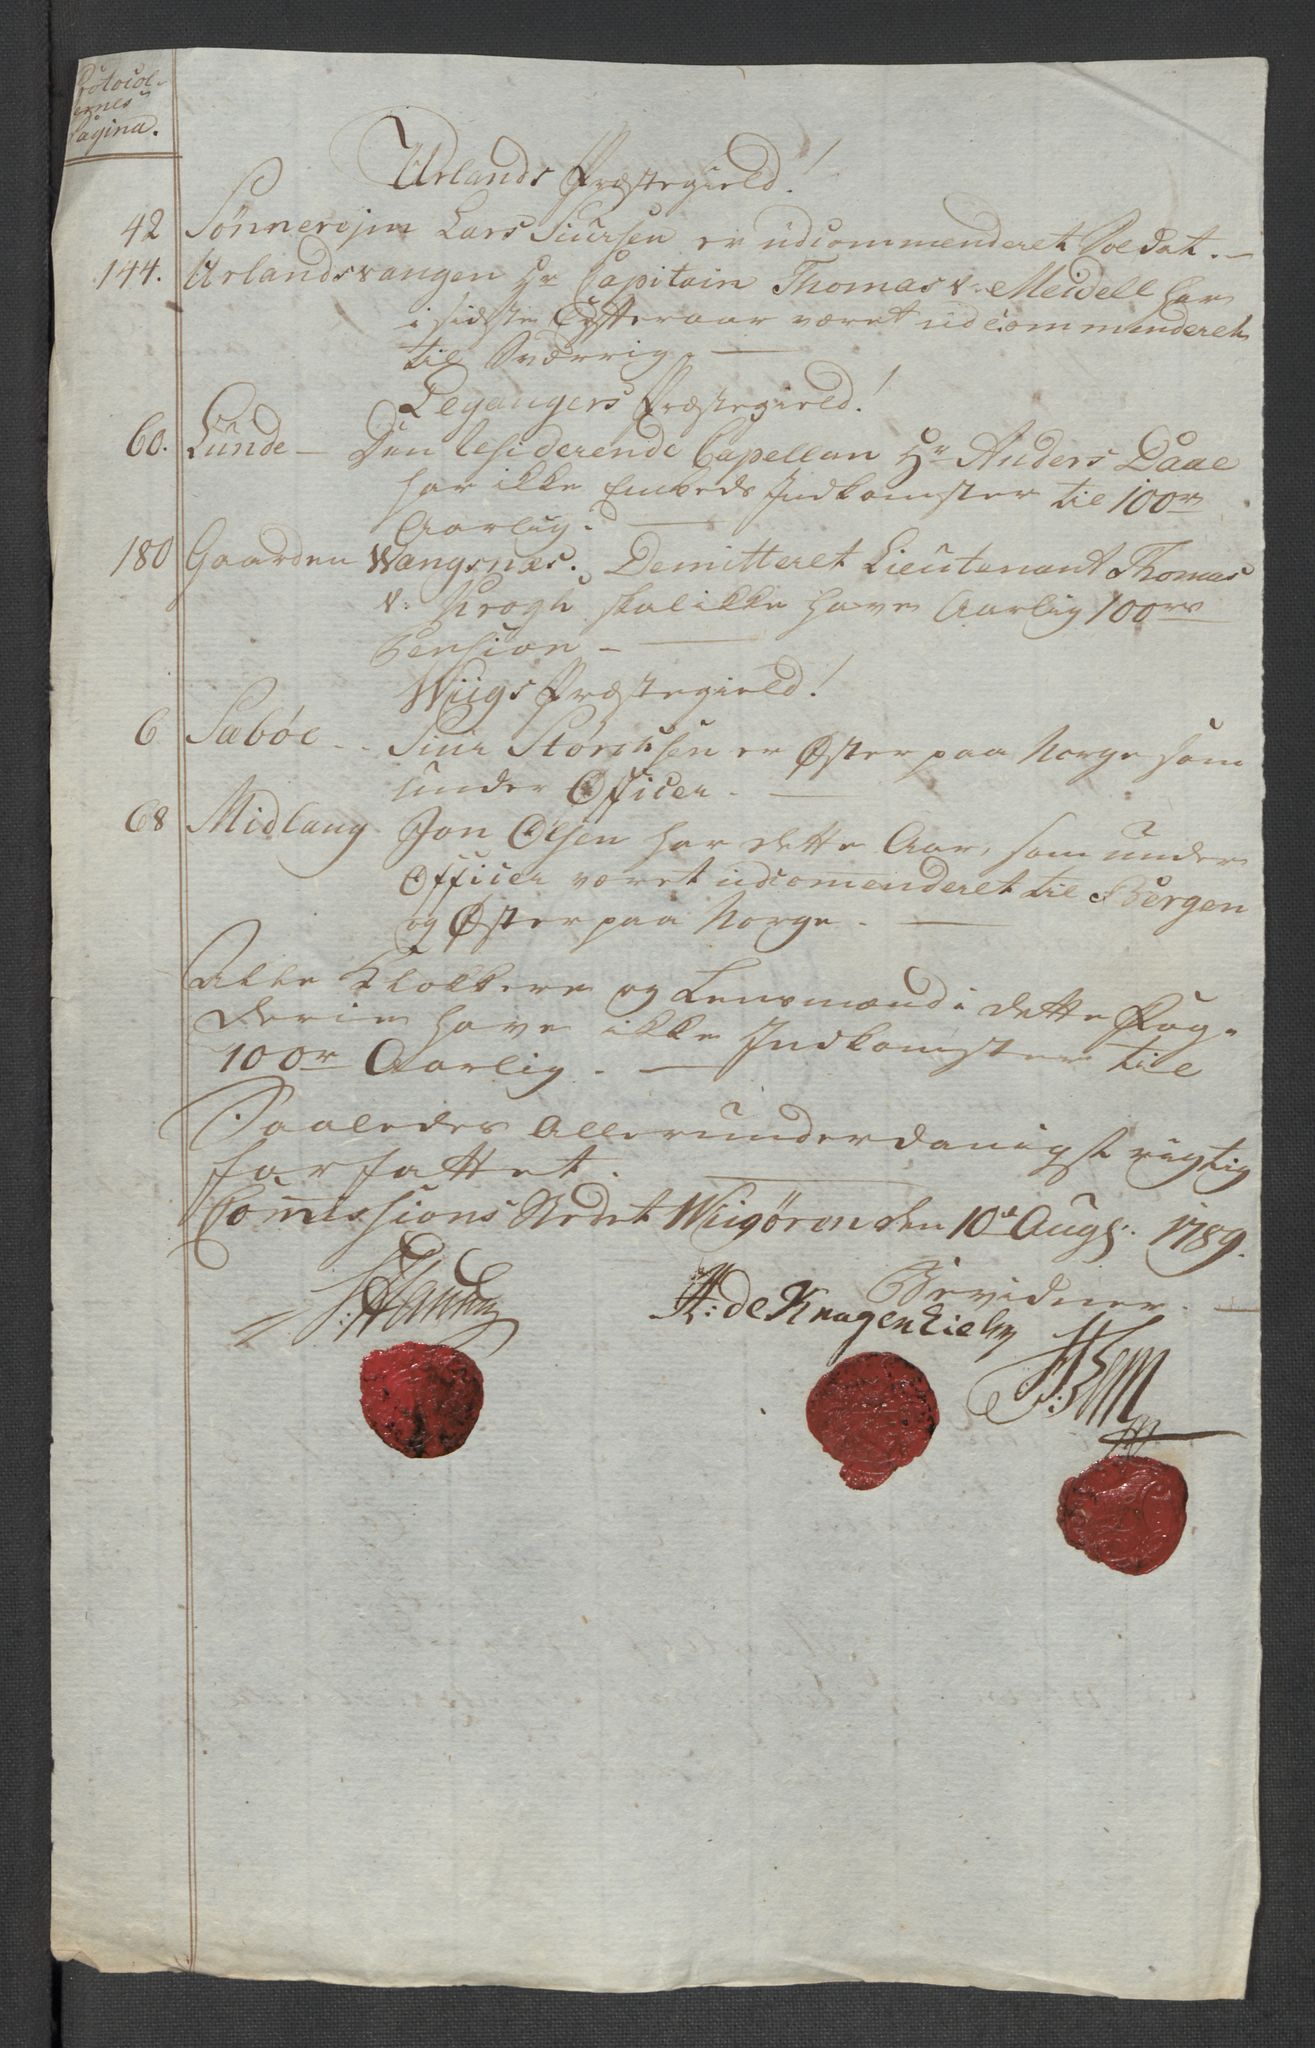 Protocol-
lernes
Pagina.
Urlands Præstegield!
42 Sønnereјm Lars Siursen er udcommenderet Soldat. –
144. Urlandsvangen Hr Capitain Thomas v. Meidell har
i sidste Efteraar været udcommenderet
til Sværrig. –
Leyangers Præstegield!
60. Lunde – Den Residerende Capellan Hr Anders Daae
har ikke Embeds Indkomster til 100r
Aarlig. –
180 Gaarden Wangsnæs. Demitteret Lieutenant Thomas
v: Krogh skal ikke have Aarlig 100rs
Pension –
Wiigs Præstegield!
6 Sabøe – Siur Størchsen er Øster paa Norge som
under Officer. –
68 Midlang Jon Olsen har dette Aar, som under
Officer været udcomenderet til Bergen
og Øster paa Norge. –
Alle Klokkere og Lensmænd i dette Fog-
derie have ikke Indkomster til
100r Aarlig. –
Saaledes Allerunderdanigst rigtig
forfattet. –
Commissions Stedet Wiigøren den 10de Augs: 1789.
Bevidner. –
A: de Knagenhielm